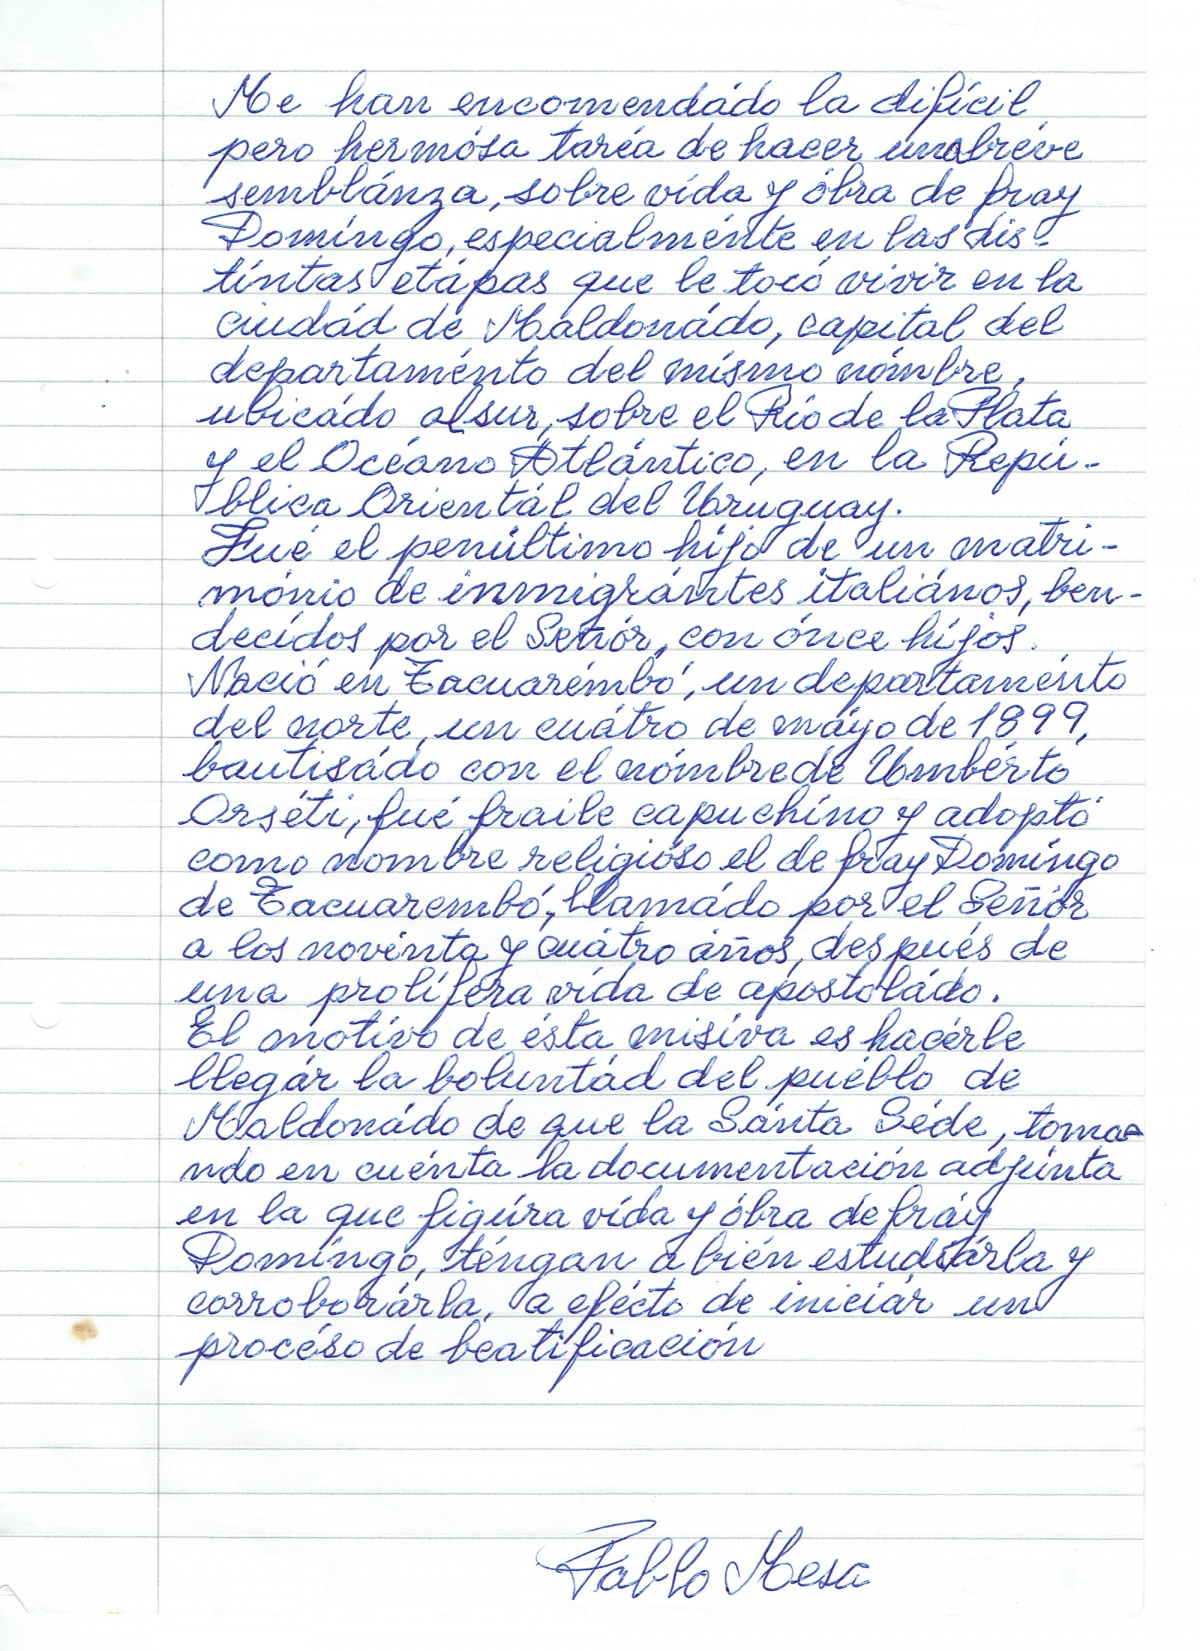 Me han encomendádo la difícil
pero hermósa taréa de hacer una bréve
semblánza, sobre vída y óbra de fray
Domíngo, especialménte en las dis-
tíntas etápas que le tocó vivir en la
ciudád de Maldonádo, capital del
departaménto del mísmo nómbre,
ubicádo al sur, sobre el Río de la Plata
y el Océano Atlántico, en la Repú-
blica Orientál del Uruguay.
Fué el penúltimo hijo de un matri-
mónio de inmigrántes italiános, ben-
decídos por el Señór, con ónce híjos.
Nació en Tacuarémbó, un departaménto
del norte, un cuátro de máyo de 1899,
bautisádo con el nómbre de Umbérto
Orséti, fué fraile capuchíno y adoptó
como nombre religióso el de fray Domíngo
de Tacuarembó, llamádo por el Señór
a los novénta y cuátro áños, después de
una prolífera vída de apostoládo.
El motívo de ésta misíva es hacérle
llegár la boluntád del puéblo de
Maldonádo de que la Sánta Séde, toma
ndo en cuénta la documentación adjúnta
en la que figúra vída y óbra de fráy
Domíngo, téngan a bién estudiárla y
corroborárla, a efécto de iniciár un
procéso de beatificación
Pablo Mesa